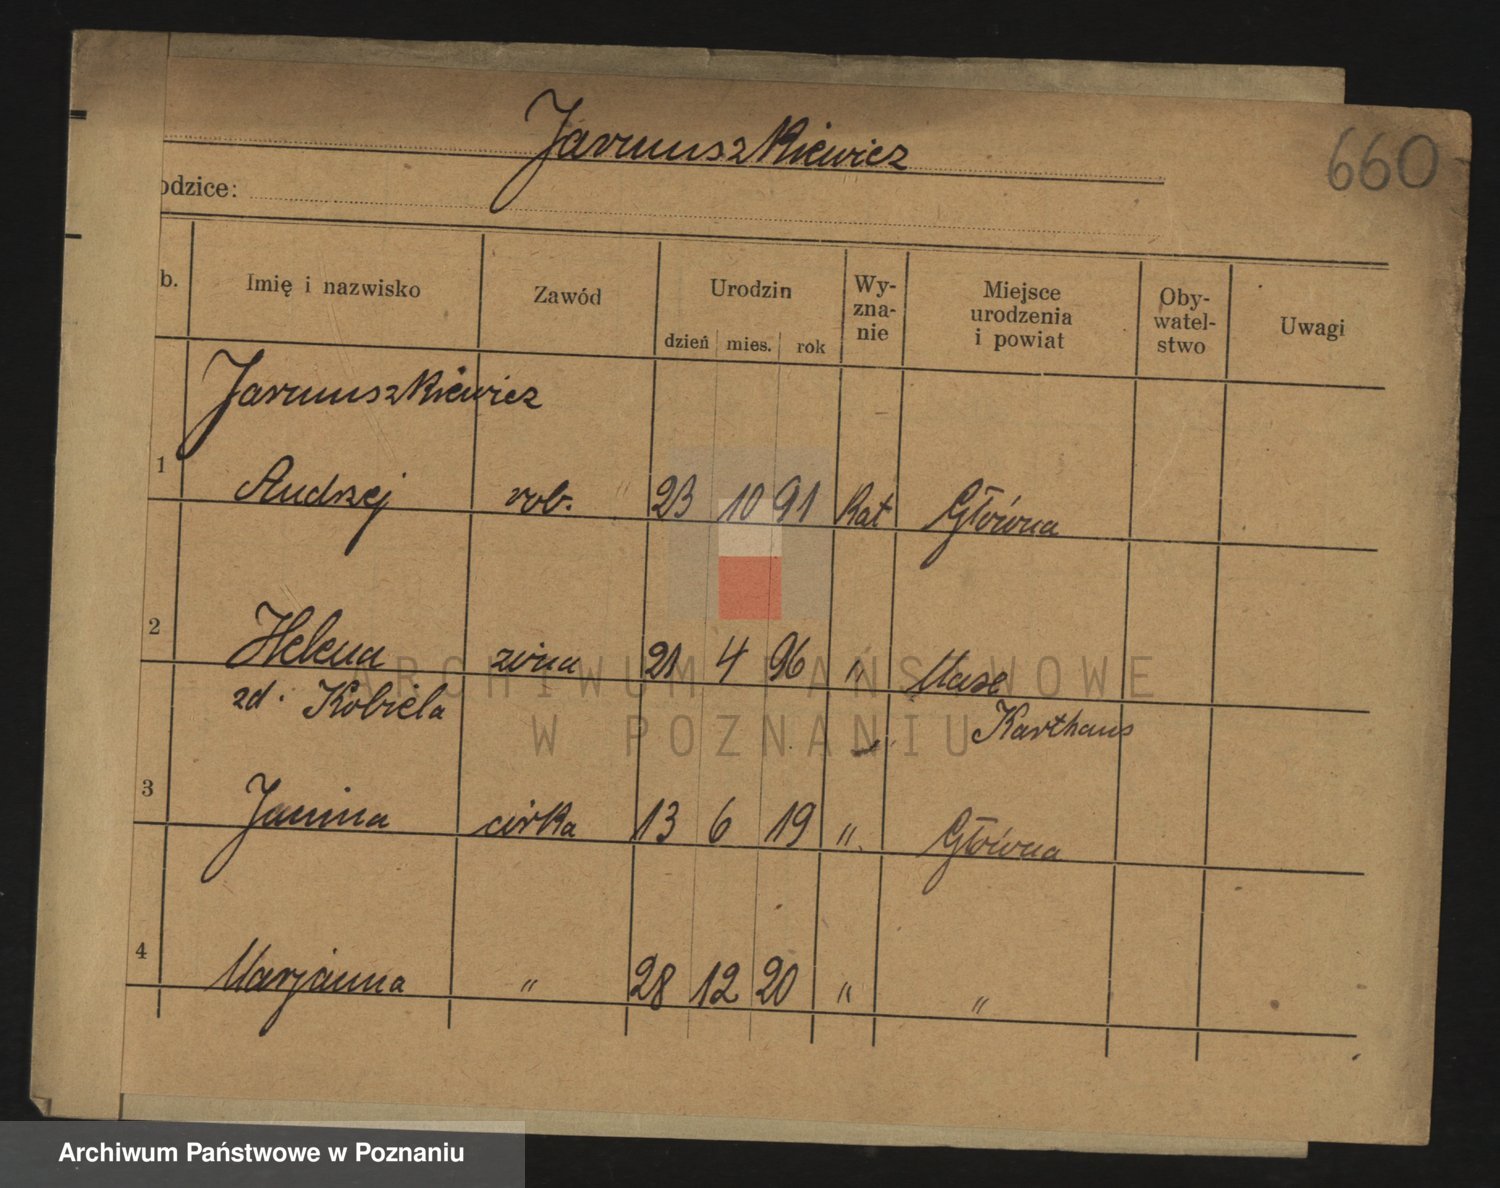 660
Jarmuszkiewicz
odzice:
b. Imię i nazwisko Zawód Urodzin dzień mies. rok Wy-zna-nie Miejsce urodzenia i powiat Oby-watel-stwo Uwagi
Jarmuszkiewicz
1 Andrzej rob. 23 10 91 kat Główna
2 Helena żona 21 4 96 "
zd. Kobiela Karthaus
3 Janina córka 13 6 19 " Główna
4 Marjanna " 28 12 20 " "
ARCHIWUM PAŃSTWOWE
W POZNANIU
Archiwum Państwowe w Poznaniu